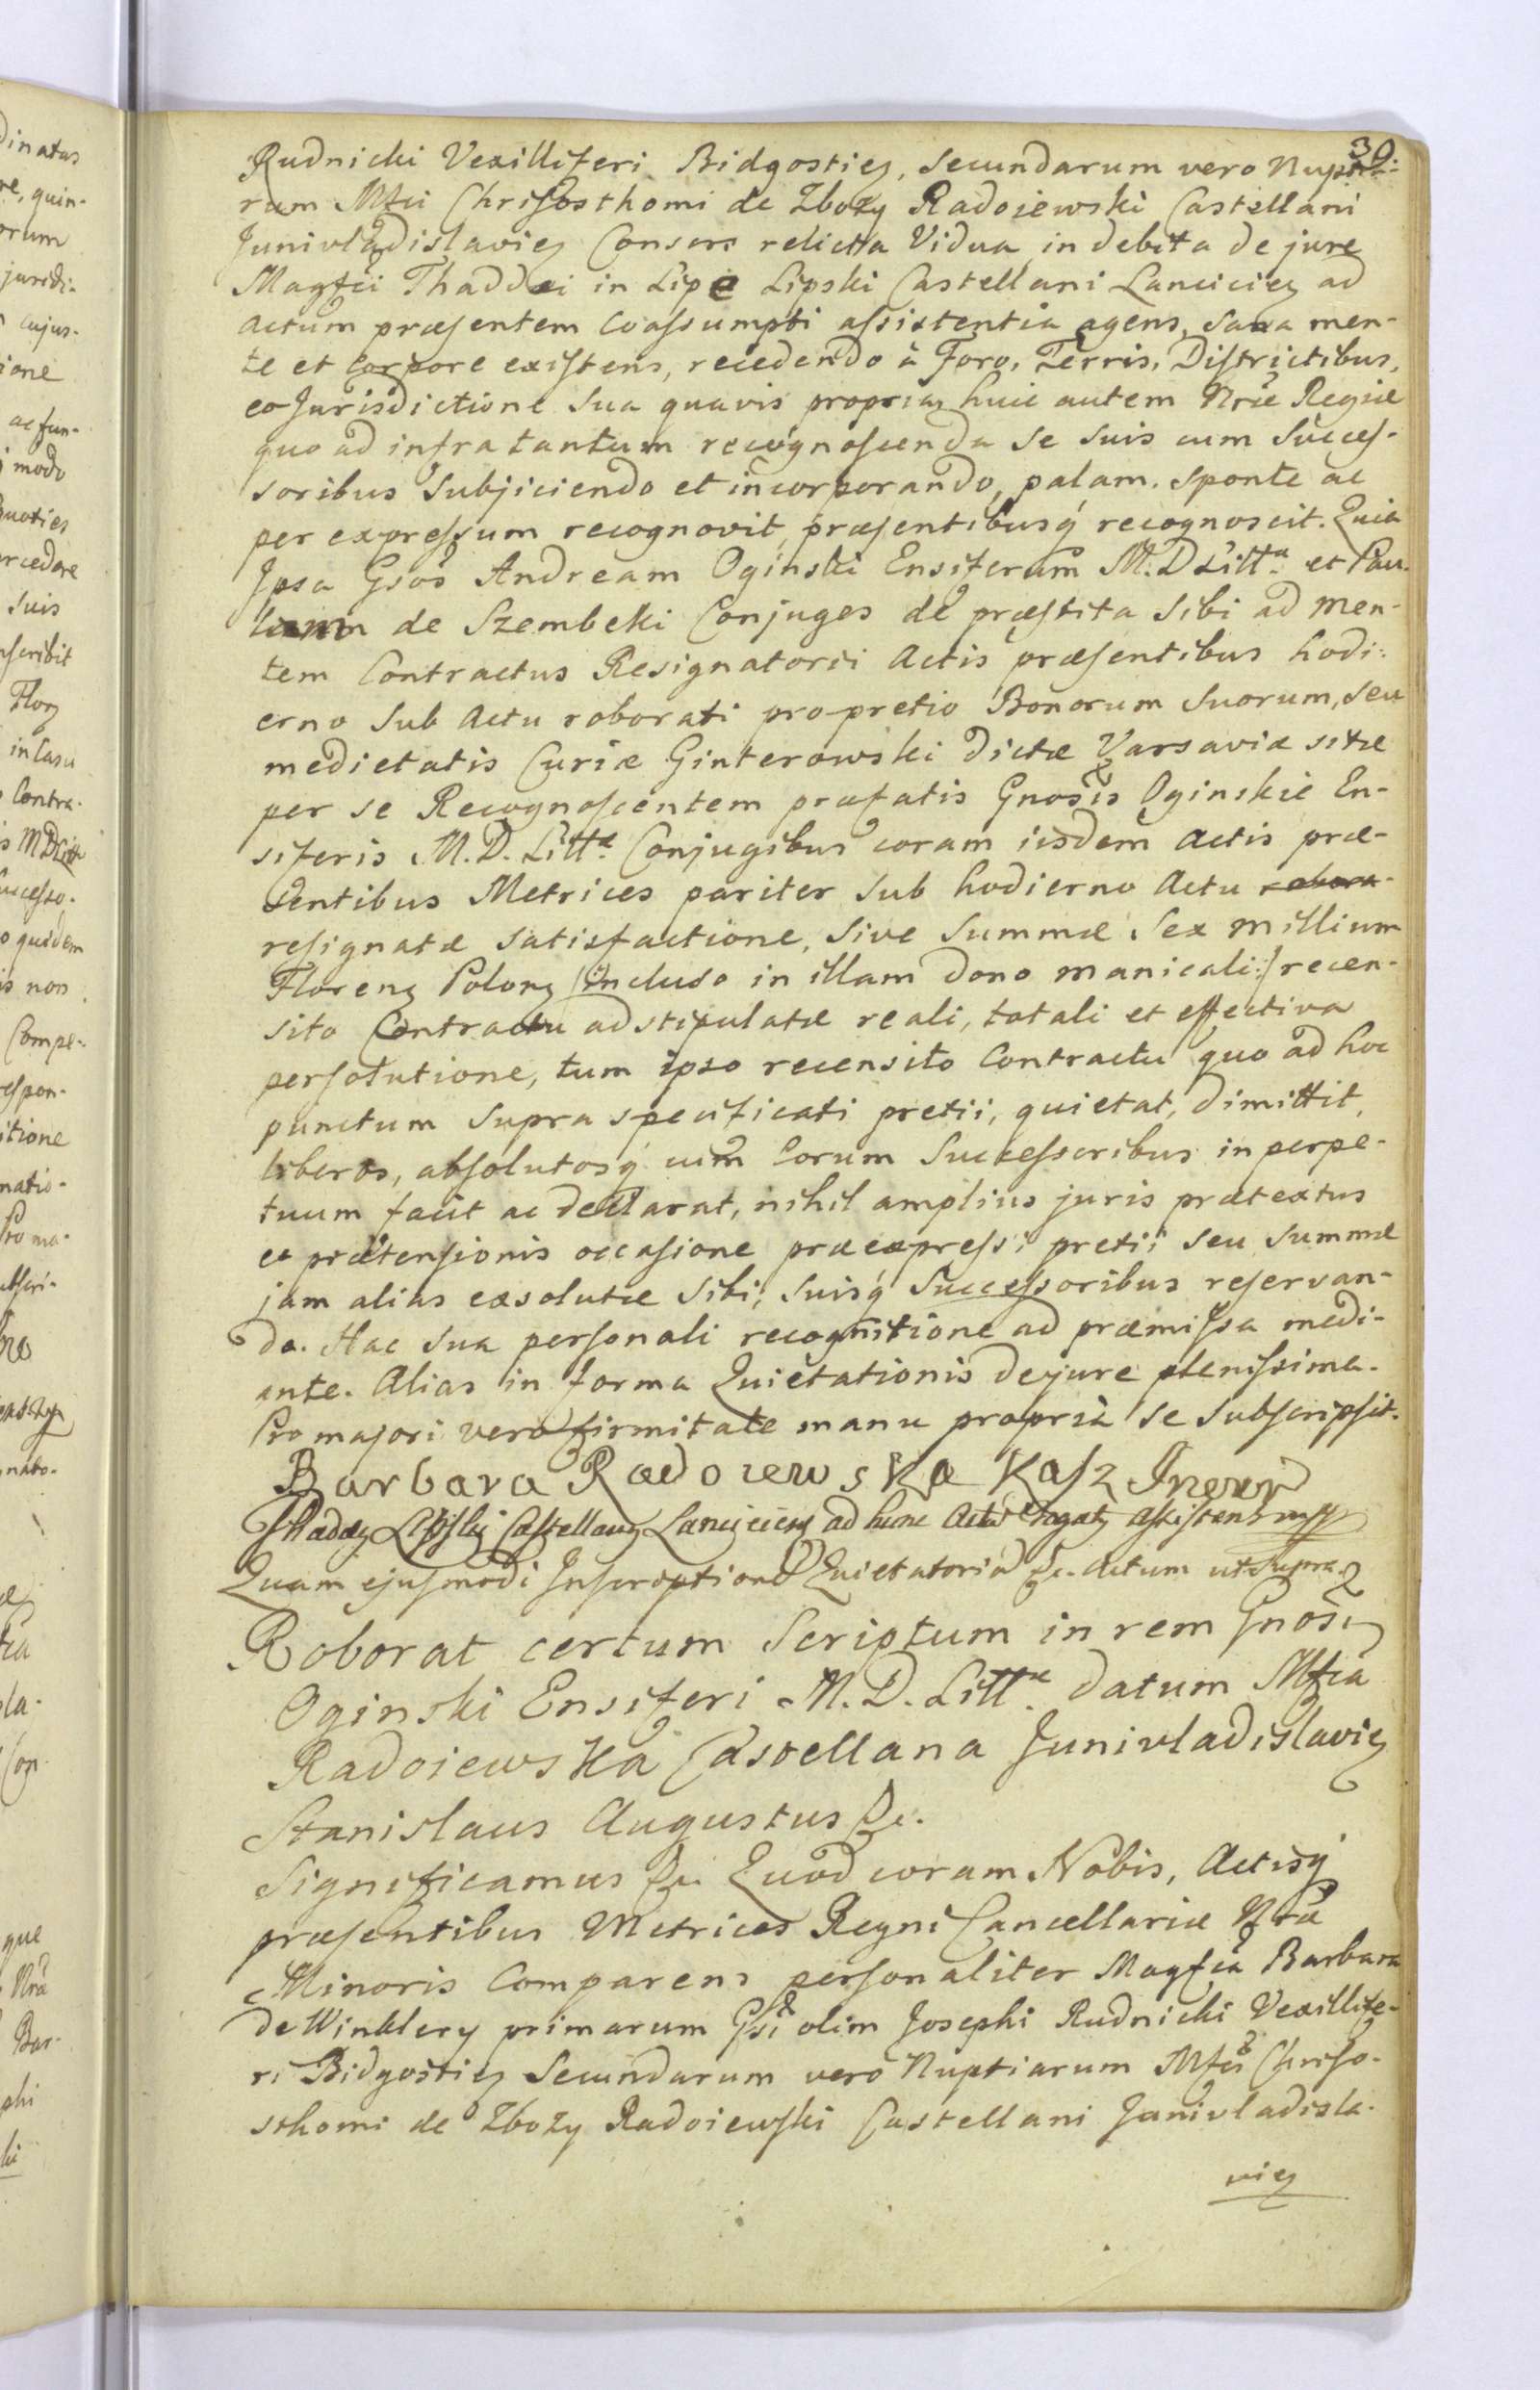 30.
Rudnicki Vexilliferi Bidgostien, secundarum vero Nuptia-
rum Mfci Chrisosthomi de Zbozy Radojewski Castellani
Junivladislavien Consors relicta Vidua in debita de jure
Magfci Thaddæi in Lipe Lipski Castellani Lancicien ad
actum præsentem coassumpti assistentia agens, sana men-
te et corpore existens, recedendo à Foro, Terris, Districtibus,
eo Jurisdictione sua quavis propria, huic autem Nræ Regiæ
quo ad infra tantum recognoscenda se suis cum succes-
soribus subjiciendo et incorporando, palam, sponte ac
per expressum recognovit, præsentibusq́ recognoscit. Quia
Ipsa Gsos Andream Oginski Ensiferum M. D Littæ et Pau-
lam de Szembeki Conjuges de præstita sibi ad men-
tem Contractus Resignatorii Actis præsentibus hodi-
erno sub actu roborati pro pretio Bonorum suorum, seu
medietatis Curiæ Ginterowski dictæ Varsaviæ sitæ
per se Recognoscentem præfatis Gnosis Oginskie En-
siferis M. D. Littæ Conjugibus coram iisdem Actis præ-
sentibus Metrices pariter sub hodierno actu robora-
resignatæ satisfactione, sive summæ sex millium
Floreng Polong /:incluso in illam dono manicali:/ recen-
sito Contractu adstipulatæ reali, totali et effectiva
persolutione, tum ipso recensito Contractu quo ad hoc
punctum supra specificati pretii, quietat, dimittit,
liberos, absolutosq́ cum Eorum Successoribus in perpe-
tuum facit ac declarat, nihil amplius juris prætextus
et prætensionis occasione præexpressi pretii seu summæ
jam alias exsolutæ sibi, suisq́ Successoribus reservan-
do. Hac sua personali recognitione ad præmissa medi-
ante. Alias in forma Quietationis dejure plenissima.
Pro majori vero firmitate manu propriâ se subscripsit.
Barbara Radoiewska Kasz Inowr
Thadæg Lipski Castellang Lanciciens ad hunc Actu rogatg assistens mpp
Quam ejusmodi Inscriptione Quietatoria &c. Actum ut supra.
Roborat certum Scriptum in rem Gnosi
Oginski Ensiferi M. D. Littæ datum Mfca
Radoiewska Castellana Junivladislavien
Stanislaus Augustus &c.
Significamus &c. Quod coram Nobis, Actisq́
præsentibus Metrices Regni Cancellariæ Nræ
Minoris Comparens personaliter Magfca Barbara
de Winklery primarum Gsi olim Josephi Rudnicki Vexillife-
ri Bidgostien Secundarum vero Nuptiarum Mfci Chriso-
sthomi de Zbozy Radoiewski Castellani Junivladisla-
vien